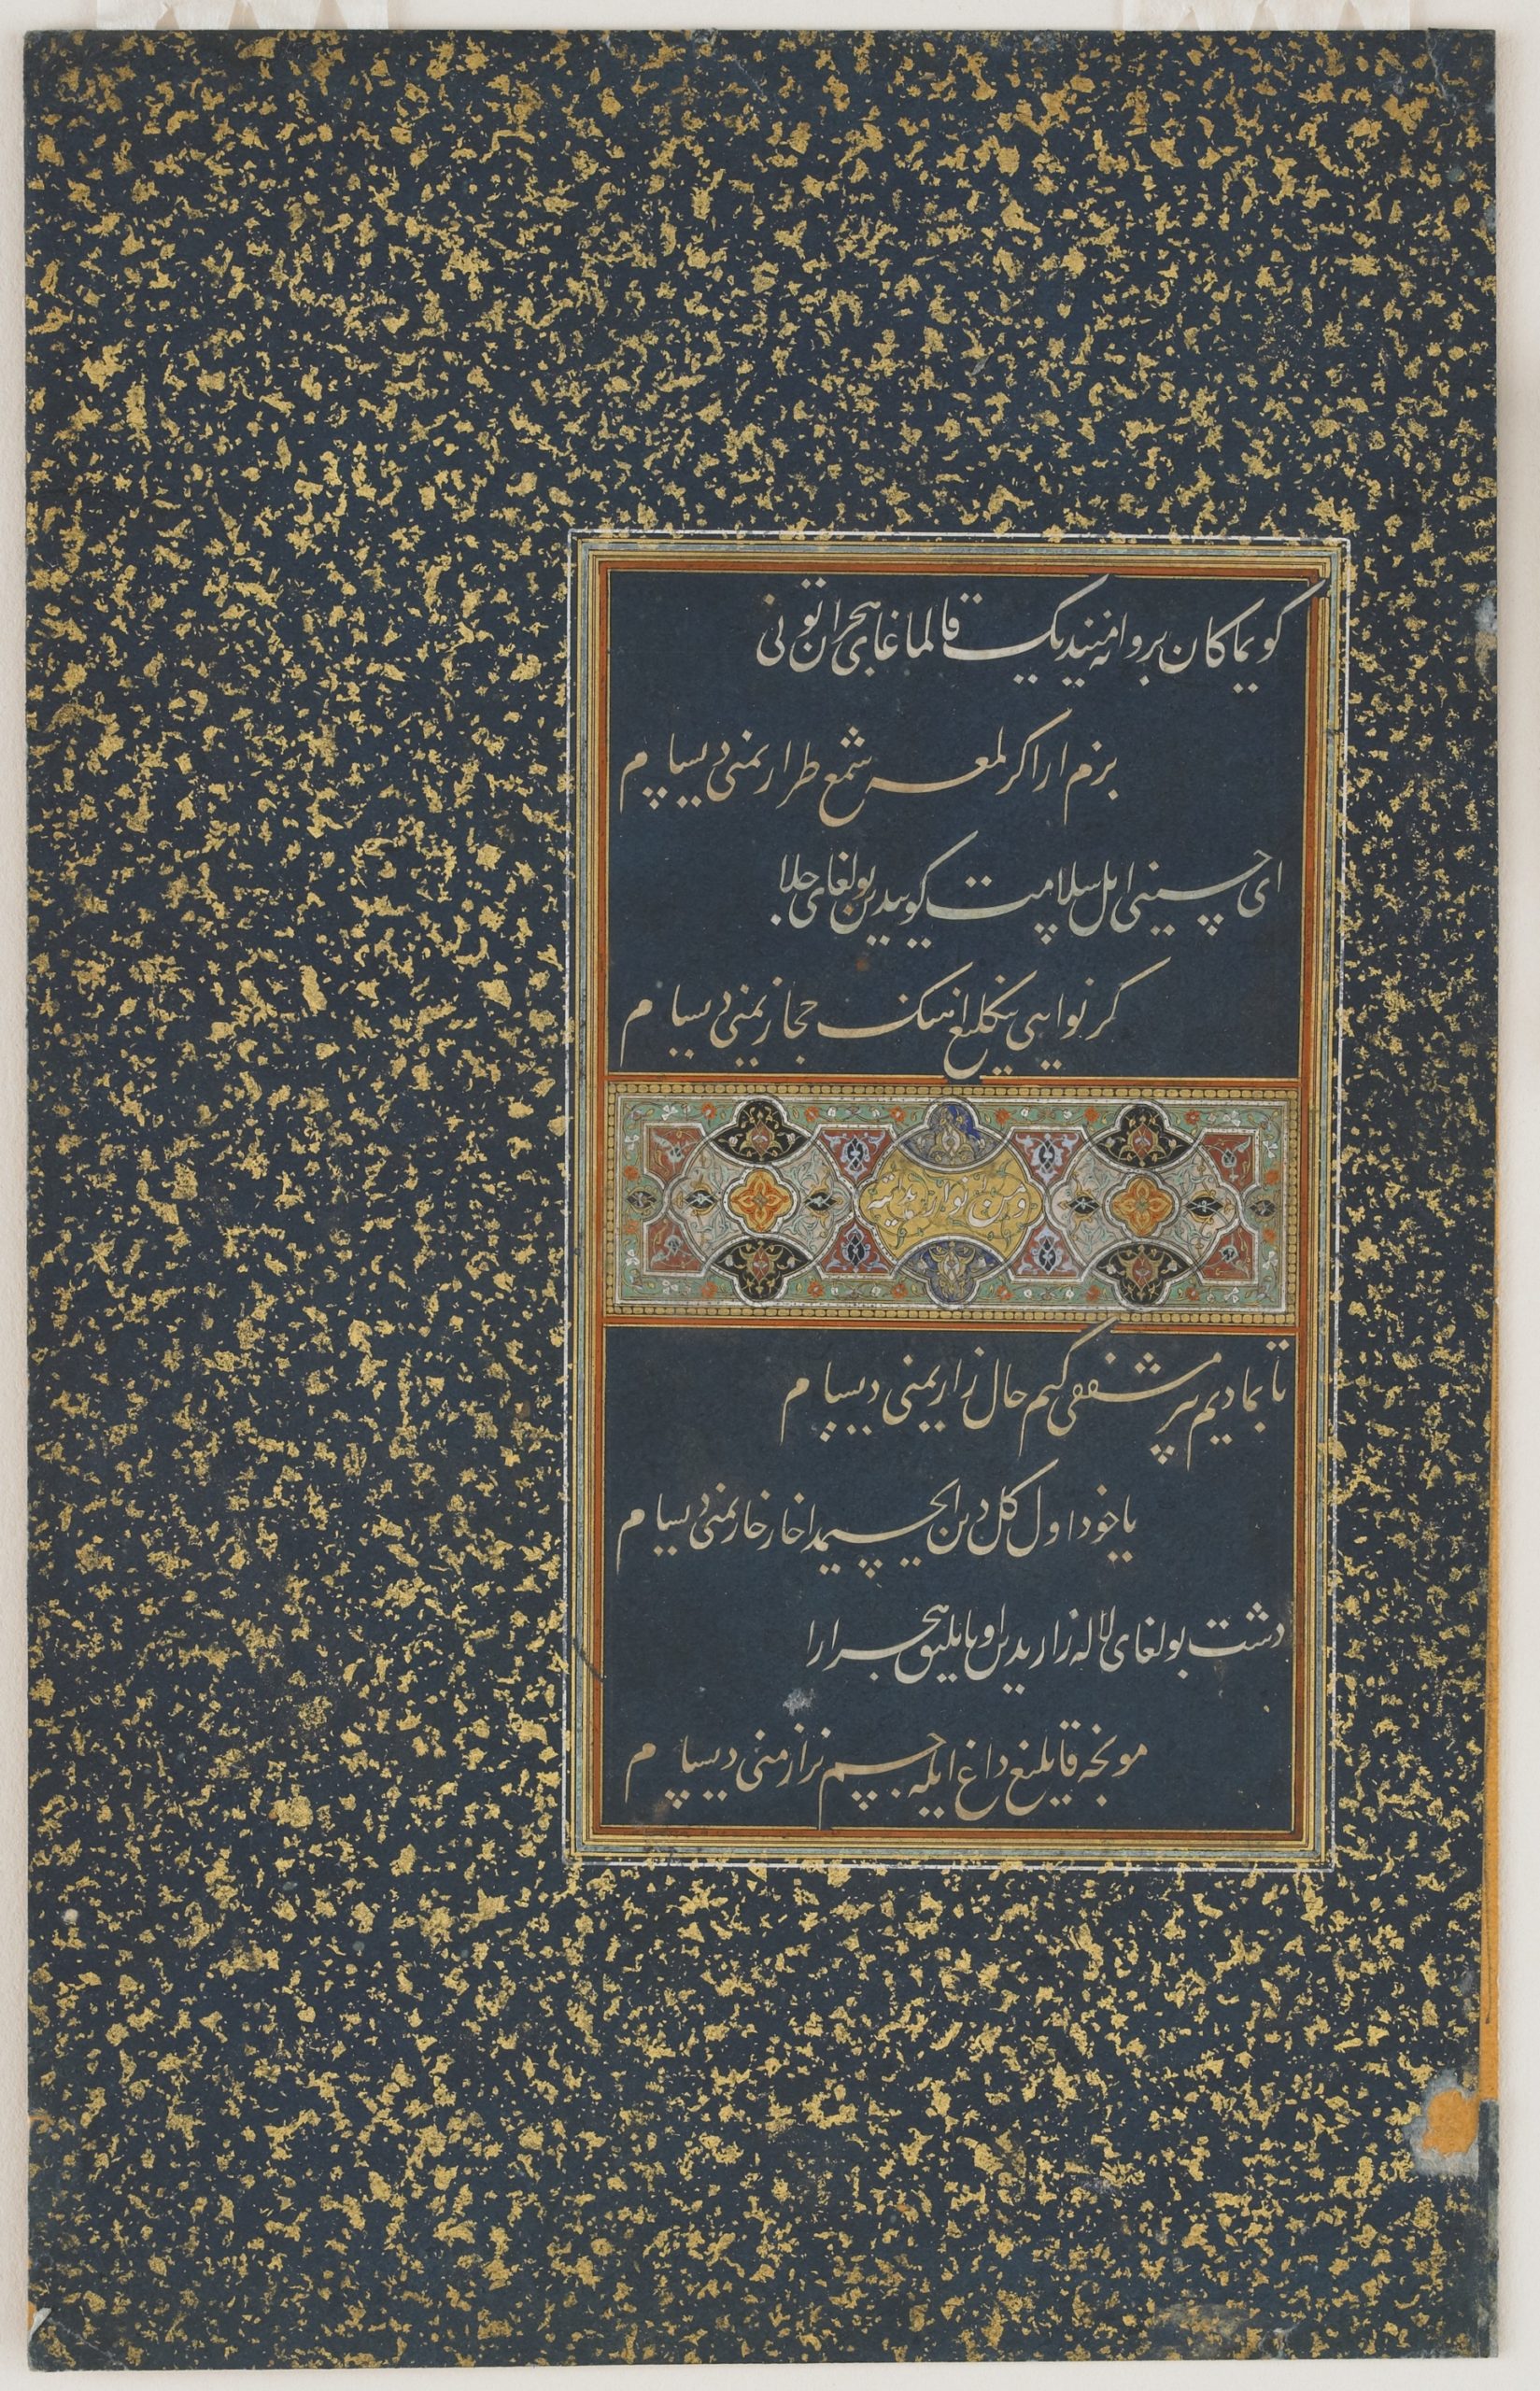 کویماکان بروانه‌نیدیک قالماغای هجران تونی
بزم ارا کر لمعه شمع طرازیمنی دیسام
ای حسینی اهل سلامیت کویید بن بولغای جلا
کر نوایی نینکلیغ انینک حجازیمنی دیسام
ومن انوار بدایته
تابمادیم بر مشفقی کیم حال زاریمنی دیسام
یا خود اول کل دین ایچیمدا خار خاریمنی دیسام
دشت بولغای لاله زار یدین اویاتلیق هجر ارا
مونجه قانلیغ داغ ایله جسم نزارمنی دیسام